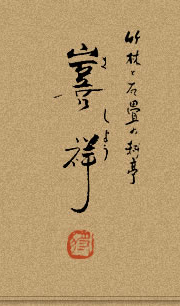 竹林と石畳の料亭
喜祥
きしょう